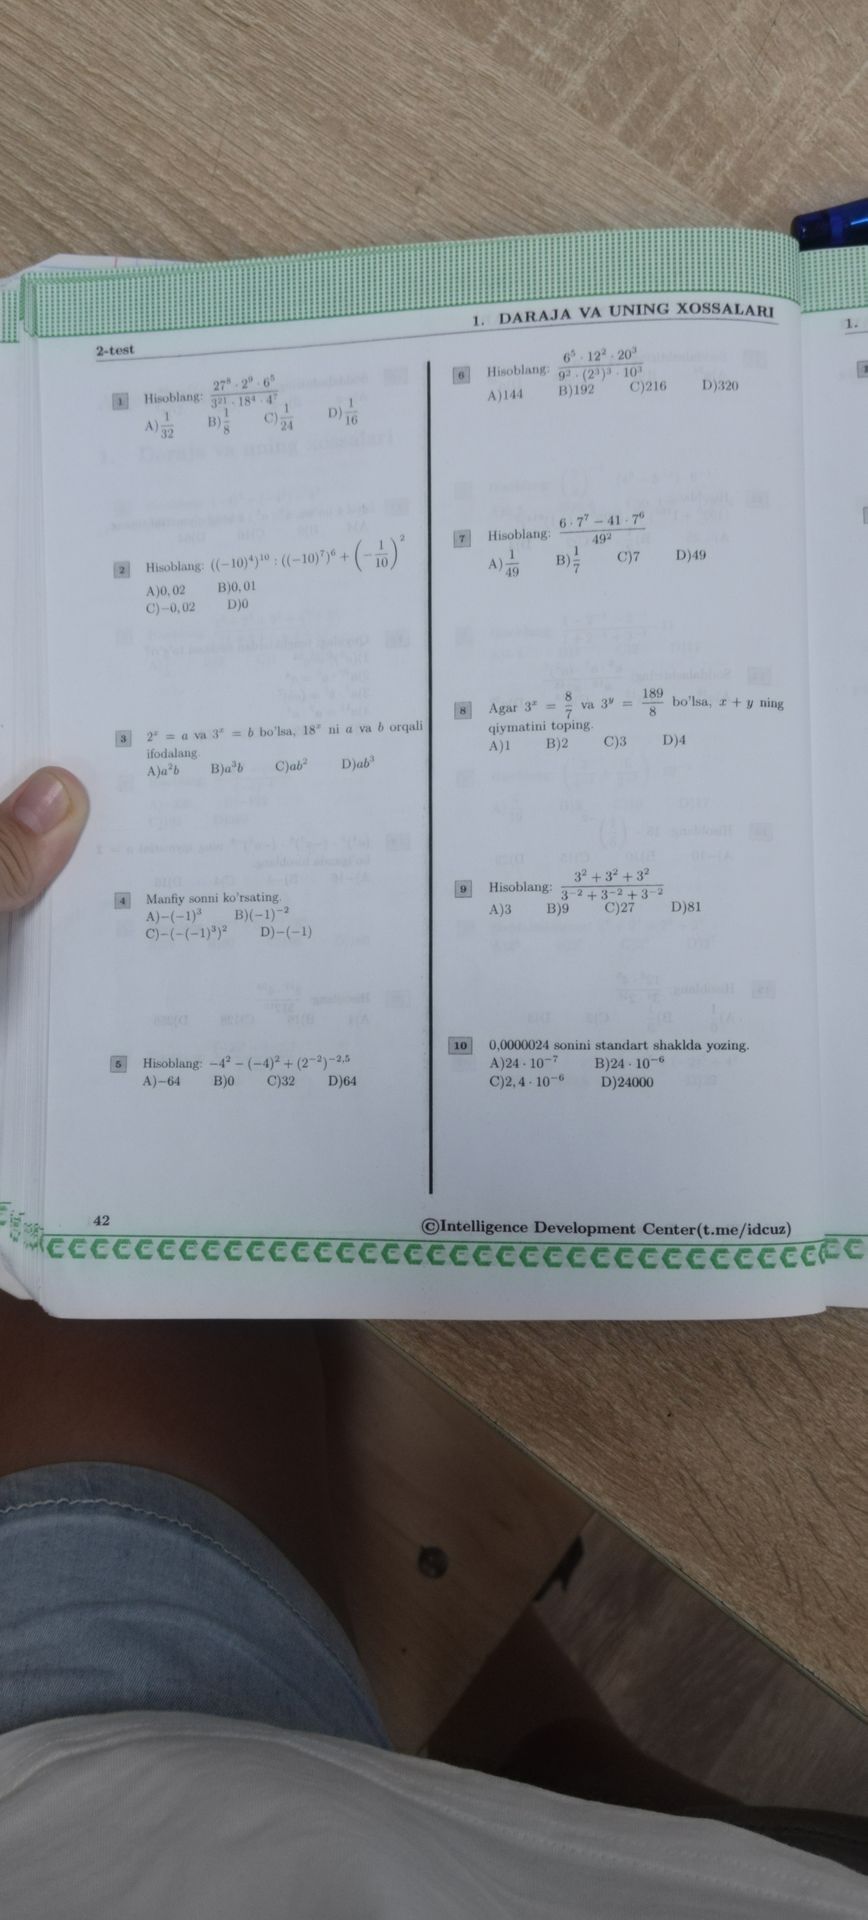 1. DARAJA VA UNING XOSSALARI
1.
2-test
1 Hisoblang: \frac{27^8 · 2^9 · 6^5}{3^{21} · 18^4 · 4^7}
A)\frac{1}{32} B)\frac{1}{8} C)\frac{1}{24} D)\frac{1}{16}
2 Hisoblang: ((−10)^4)^{10} : ((−10)^7)^6 + (−\frac{1}{10})^2
A)0, 02 B)0, 01
C)−0, 02 D)0
3 2^x = a va 3^x = b bo'lsa, 18^x ni a va b orqali
ifodalang.
A)a^2b B)a^3b C)ab^2 D)ab^3
4 Manfiy sonni ko'rsating.
A)−(−1)^3 B)(−1)^{−2}
C)−(−(−1)^3)^2 D)−(−1)
5 Hisoblang: −4^2 − (−4)^2 + (2^{−2})^{−2,5}
A)−64 B)0 C)32 D)64
6 Hisoblang: \frac{6^5 · 12^2 · 20^3}{9^3 · (2^3)^3 · 10^3}
A)144 B)192 C)216 D)320
7 Hisoblang: \frac{6 · 7^7 − 41 · 7^6}{49^2}
A)\frac{1}{49} B)\frac{1}{7} C)7 D)49
8 Agar 3^x = \frac{8}{7} va 3^y = \frac{189}{8} bo'lsa, x + y ning
qiymatini toping.
A)1 B)2 C)3 D)4
9 Hisoblang: \frac{3^2 + 3^2 + 3^2}{3^{−2} + 3^{−2} + 3^{−2}}
A)3 B)9 C)27 D)81
10 0,0000024 sonini standart shaklda yozing.
A)24 · 10^{−7} B)24 · 10^{−6}
C)2, 4 · 10^{−6} D)24000
42
©Intelligence Development Center(t.me/idcuz)